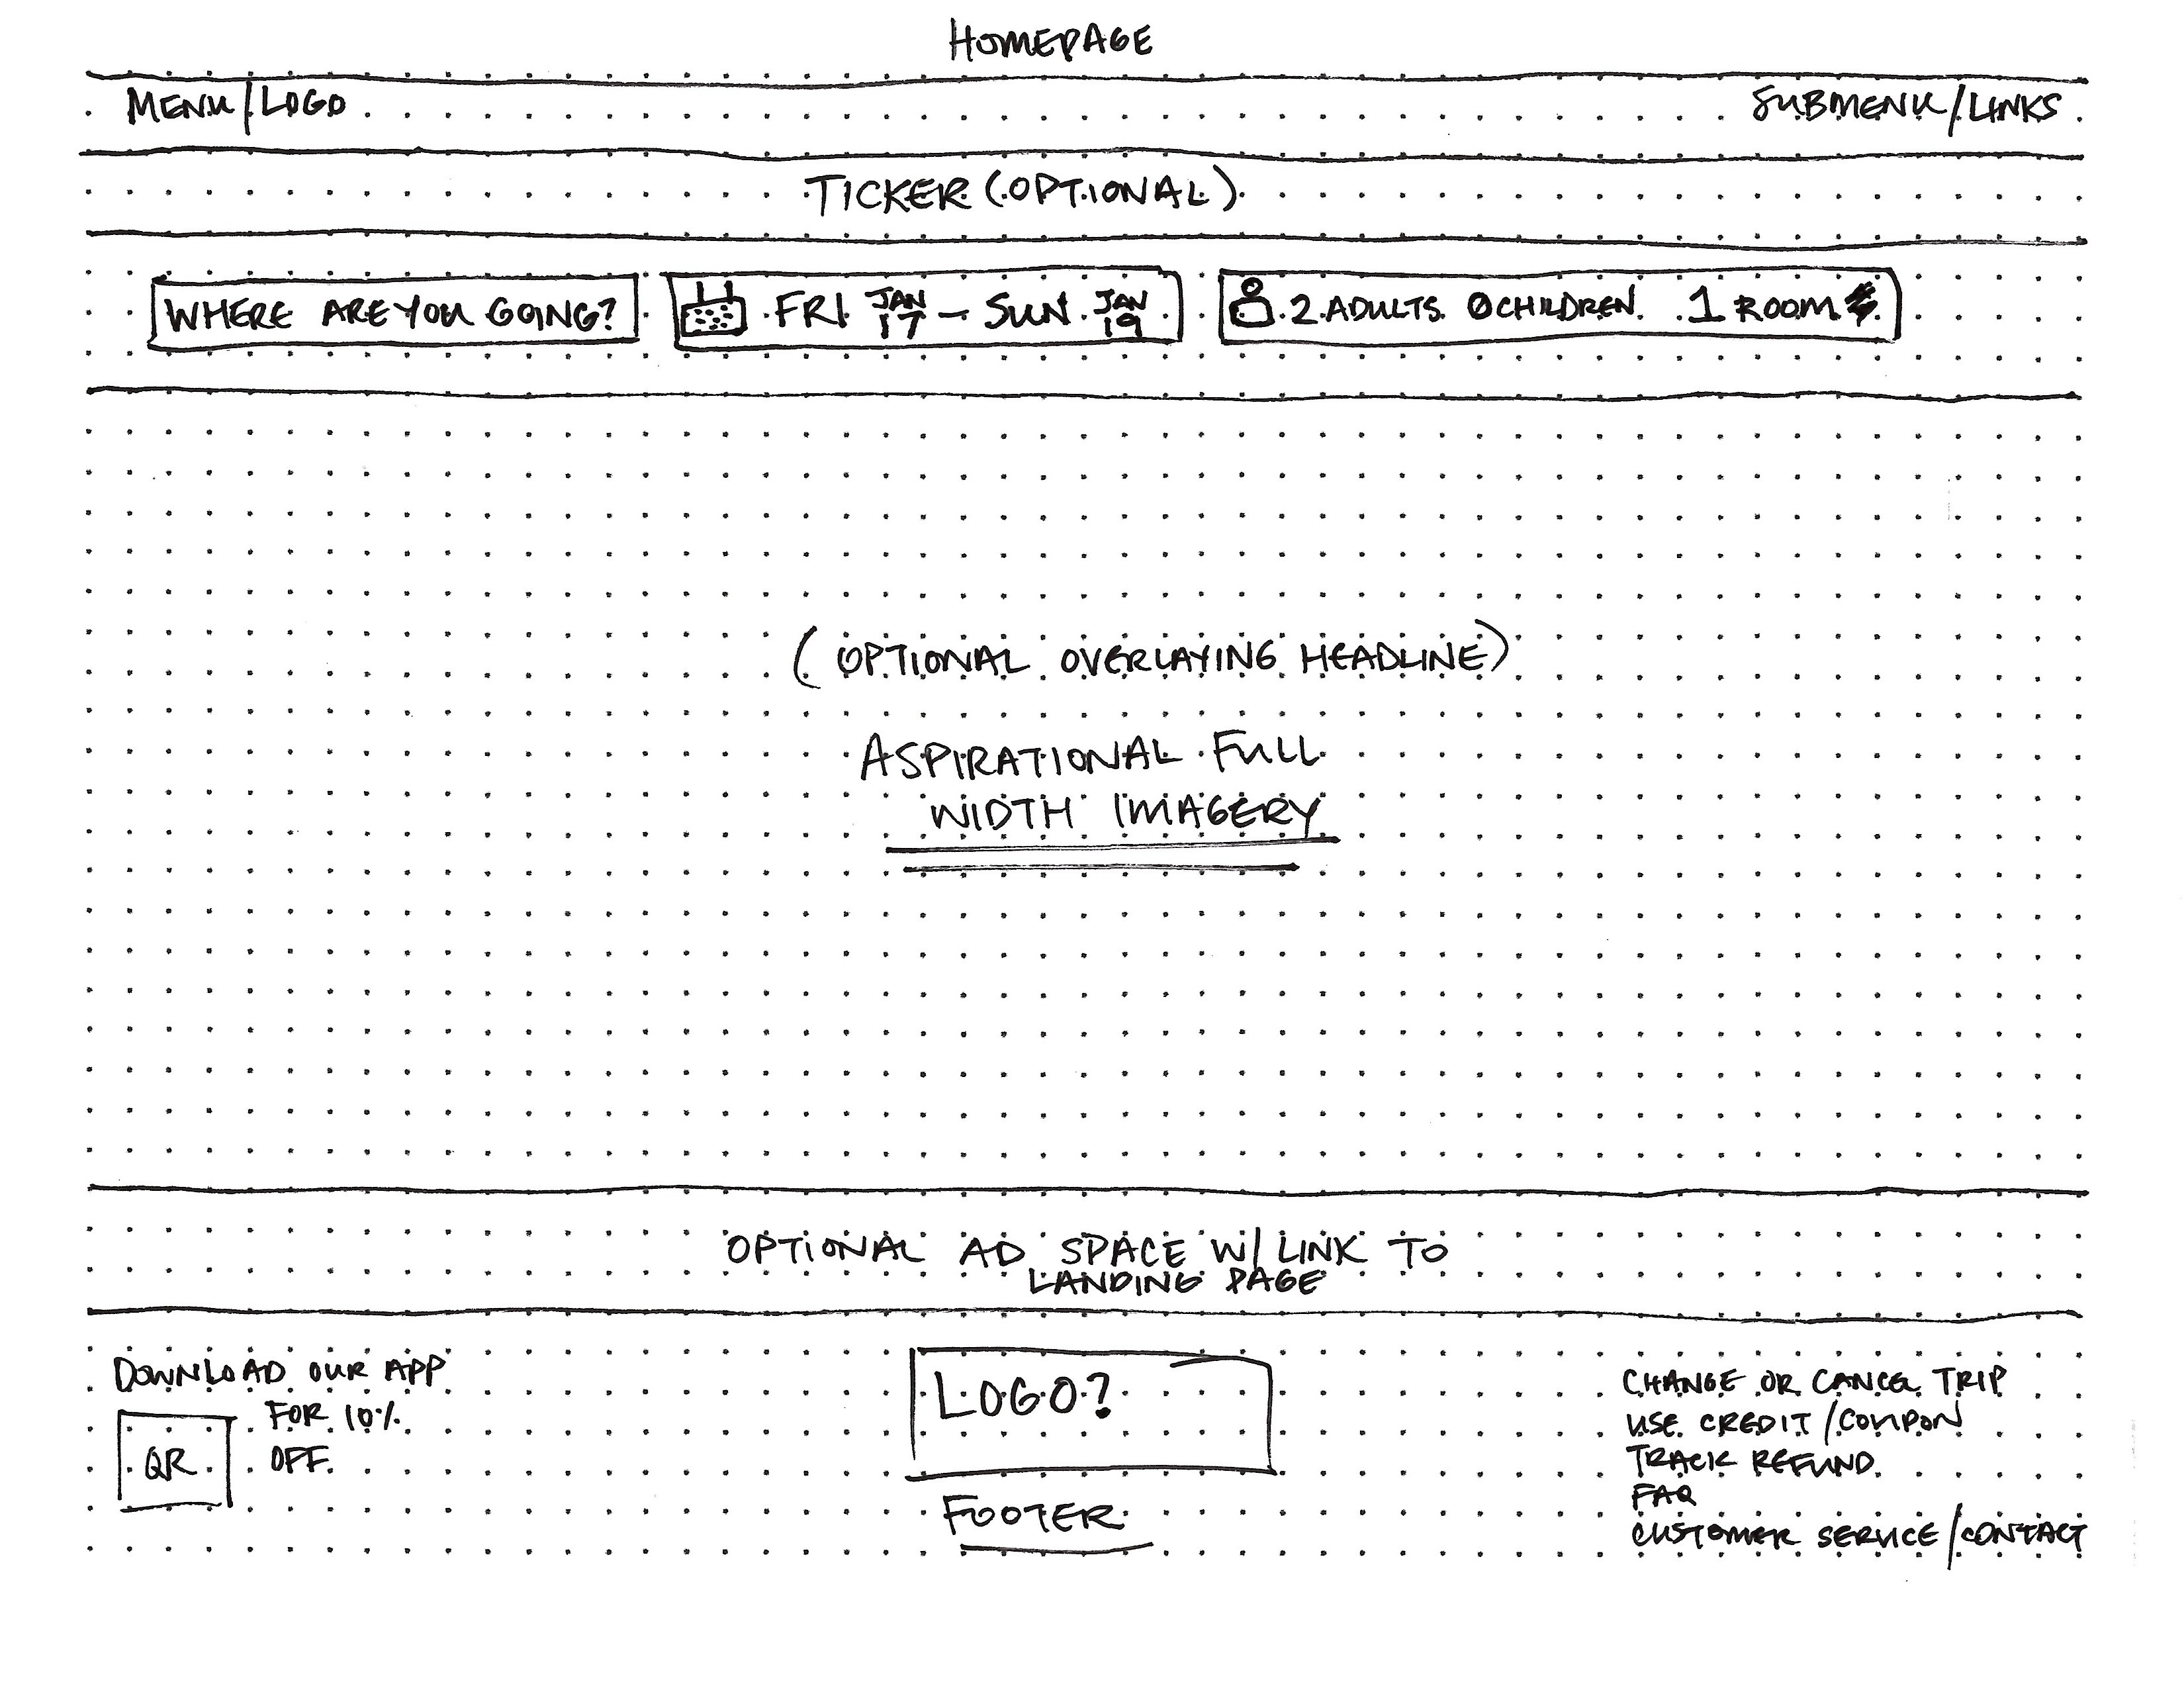 HOMEPAGE
MENU/LOGO SUBMENU/LINKS
TICKER (OPTIONAL)
WHERE ARE YOU GOING? FRI JAN 17 – SUN JAN 19 2 ADULTS 0 CHILDREN 1 ROOM
(OPTIONAL OVERLAYING HEADLINE)
ASPIRATIONAL FULL
WIDTH IMAGERY
OPTIONAL AD SPACE W/ LINK TO
LANDING PAGE
DOWNLOAD OUR APP
FOR 10%
OFF
QR
LOGO?
FOOTER
CHANGE OR CANCEL TRIP
USE CREDIT/COUPON
TRACK REFUND
FAQ
CUSTOMER SERVICE/CONTACT